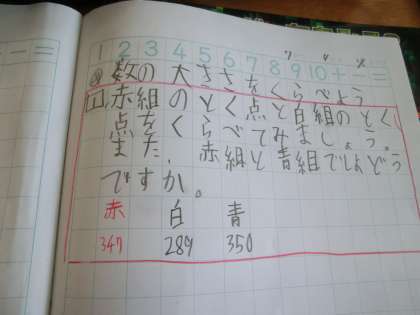 1 2 3 4 5 6 7 8 9 10 + - =
数の大きさをくらべよう
1 赤組のとく点と白組のとく
点をくらべてみましょう。
また、赤組と青組でしょどう
ですか。
赤 白 青
347 289 350